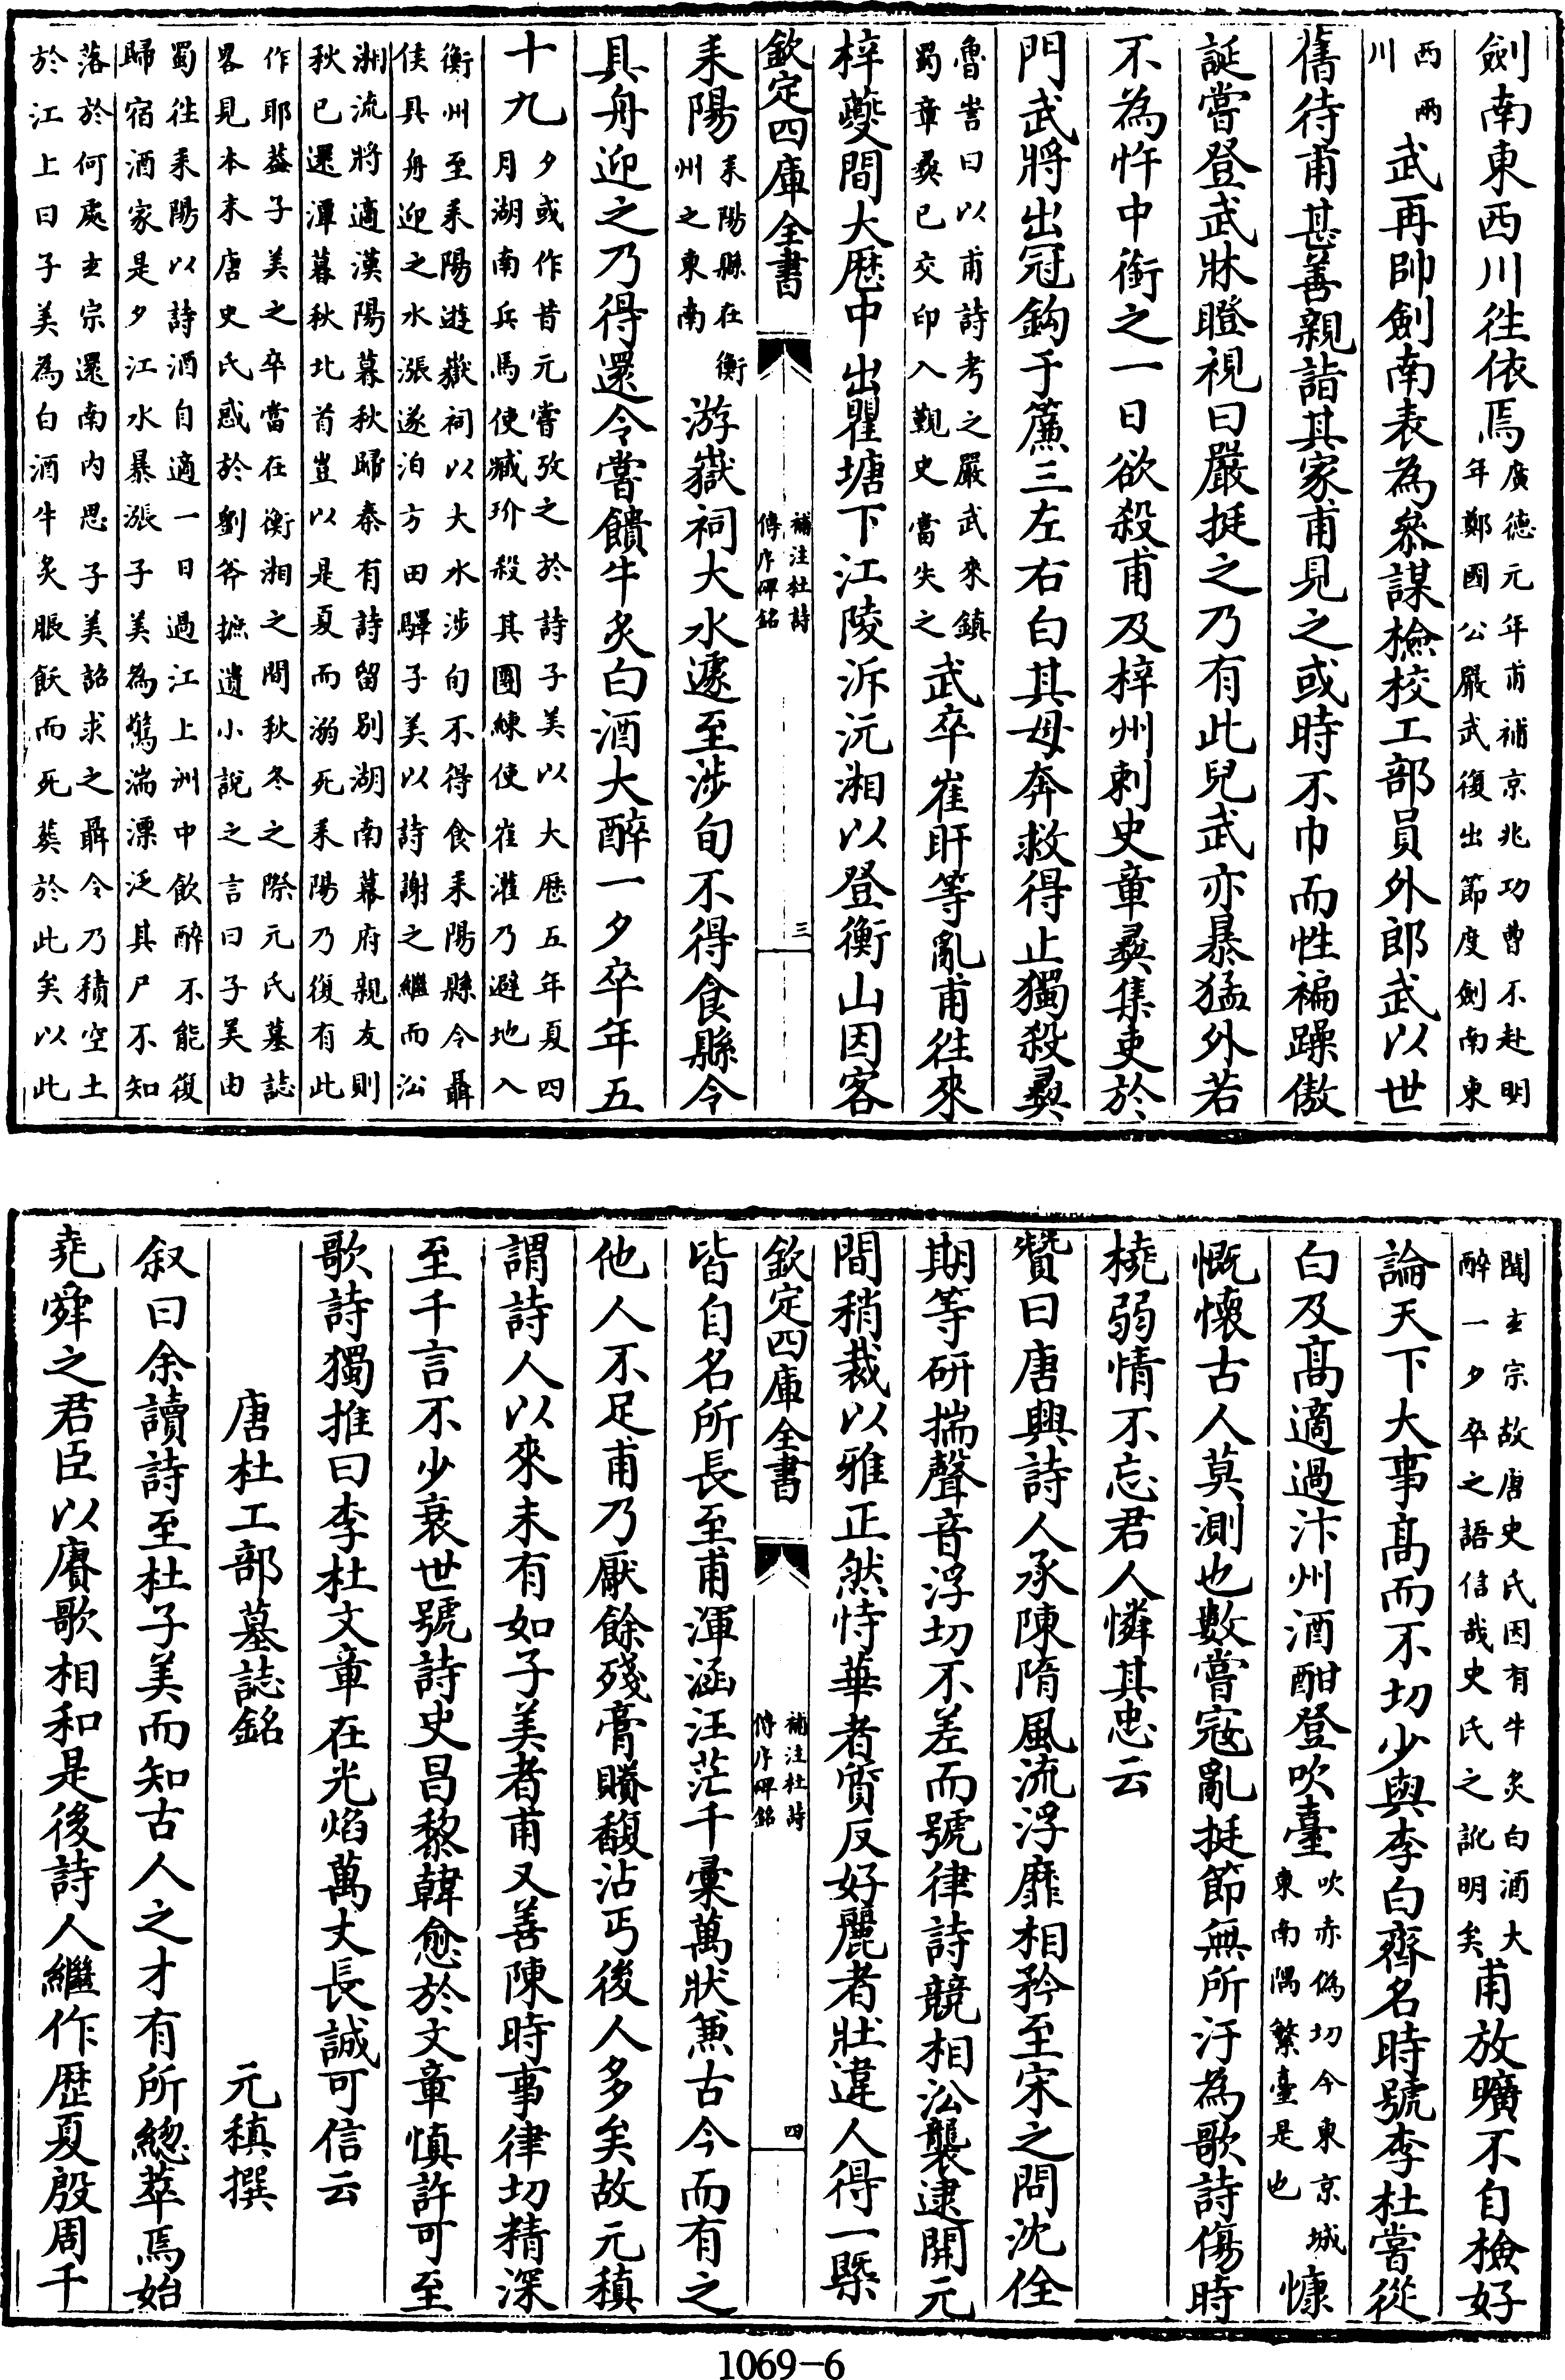 劍南東西川往依焉廣德元年甫補京兆功曹不赴明年鄭國公嚴武復出節度劍南東
西兩川武再帥劍南表為參謀檢校工部員外郎武以世
舊待甫甚善親詣其家甫見之或時不巾而性褊躁傲
誕嘗登武牀瞪視曰嚴挺之乃有此兒武亦暴猛外若
不為忤中銜之一日欲殺甫及梓州刺史章彝集吏於
門武將出冠鈎于簾三左右白其母奔救得止獨殺彝
魯訔曰以甫詩考之嚴武來鎮蜀章彝已交印入覲史當失之武卒崔旰等亂甫往來
梓夔間大歴中出瞿塘下江陵泝沅湘以登衡山因客
欽定四庫全書 補注杜詩 傳序碑銘 三
耒陽耒陽縣在衡州之東南游嶽祠大水遽至涉旬不得食縣令
具舟迎之乃得還令嘗饋牛炙白酒大醉一夕卒年五
十九夕或作昔元嘗攷之於詩子美以大歴五年夏四月湖南兵馬使臧玠殺其團練使崔灌乃避地入
衡州至耒陽遊嶽祠以大水涉旬不得食耒陽縣令聶侯具舟迎之水漲遂泊方田驛子美以詩謝之繼而沿
湘流將適漢陽暮秋歸秦有詩留别湖南幕府親友則秋已還潭暮秋北首豈以是夏而溺死耒陽乃復有此
作耶葢子美之卒當在衡湘之間秋冬之際元氏墓誌畧見本末唐史氏惑於劉斧摭遺小說之言曰子美由
蜀往耒陽以詩酒自適一日過江上洲中飲醉不能復歸宿酒家是夕江水暴漲子美為驚湍漂泛其尸不知
落於何處玄宗還南内思子美詔求之聶令乃積空土於江上曰子美為白酒牛炙脹飫而死葬於此矣以此
聞玄宗故唐史氏因有牛炙白酒大醉一夕卒之語信哉史氏之訛明矣甫放曠不自檢好
論天下大事髙而不切少與李白齊名時號李杜嘗從
白及髙適過汴州酒酣登吹臺吹亦偽切今東京城東南隅繁臺是也慷
慨懷古人莫測也數嘗寇亂挺節無所汙為歌詩傷時
橈弱情不忘君人憐其忠云
贊曰唐興詩人承陳隋風流浮靡相矜至宋之問沈佺
期等研揣聲音浮切不差而號律詩競相沿襲逮開元
間稍裁以雅正然恃華者質反好麗者壯違人得一槩
欽定四庫全書 補注杜詩 傳序碑銘 四
皆自名所長至甫渾涵汪茫千彚萬狀兼古今而有之
他人不足甫乃厭餘殘膏賸馥沾丐後人多矣故元稹
謂詩人以來未有如子美者甫又善陳時事律切精深
至千言不少衰世號詩史昌黎韓愈於文章慎許可至
歌詩獨推曰李杜文章在光焰萬丈長誠可信云
唐杜工部墓誌銘 元稹撰
叙曰余讀詩至杜子美而知古人之才有所總萃焉始
堯舜之君臣以賡歌相和是後詩人繼作歴夏殷周千
1069-6